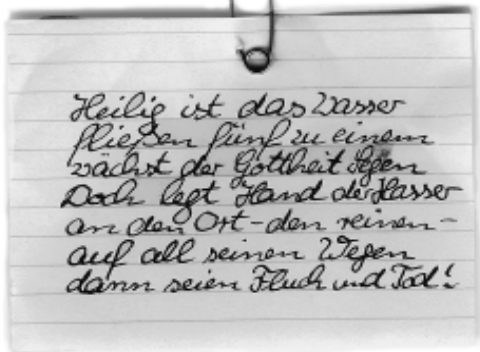 Heilig ist das Wasser
fließen fünf zu einem
wächst der Gottheit Segen
Doch legt Hand der Hasser
an den Ort - den reinen -
auf all seinen Wegen
dann seien Fluch und Tod!